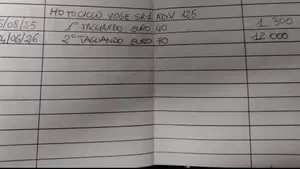 MOTOCICLO VOGE SR1 ADV 125
5/08/25 1° TAGLIANDO EURO 40 1 300
4/06/26 2° TAGLIANDO EURO 70 12 000